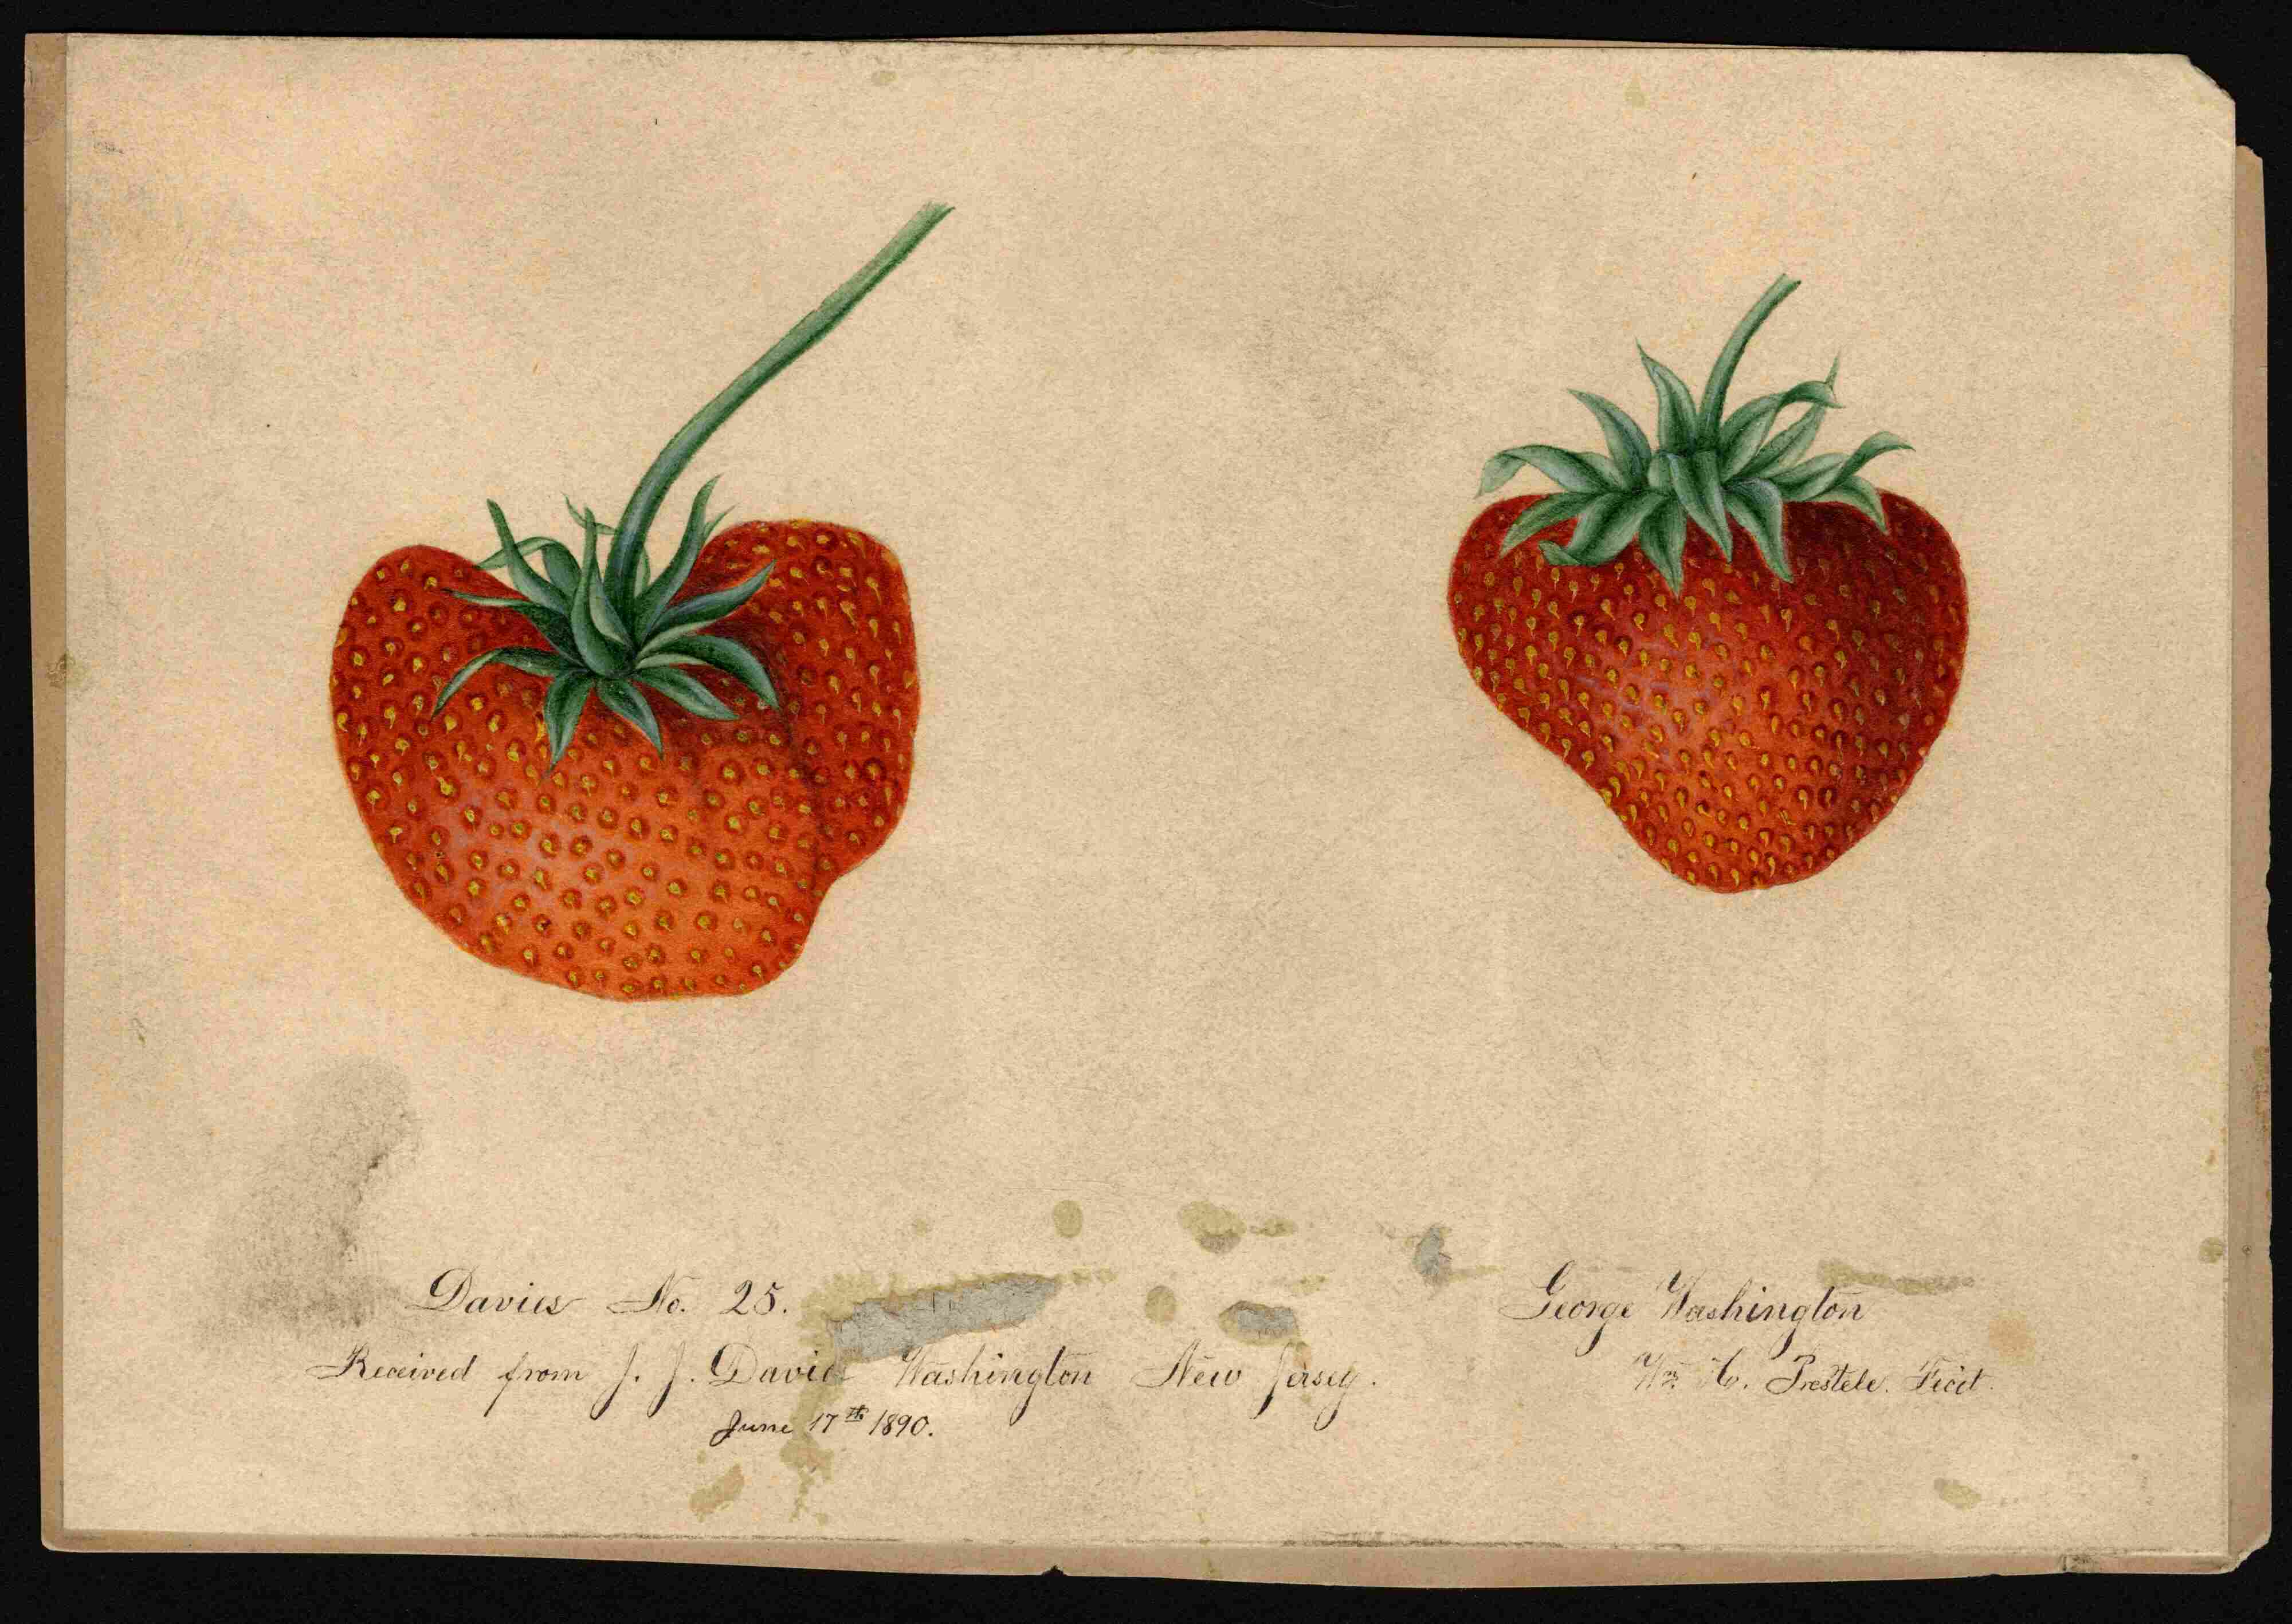 Davies No. 25.
Received from J. J. Davies Washington New Jersey.
June 17th 1890.
George Washington
Wm. H. Prestele. Fecit.